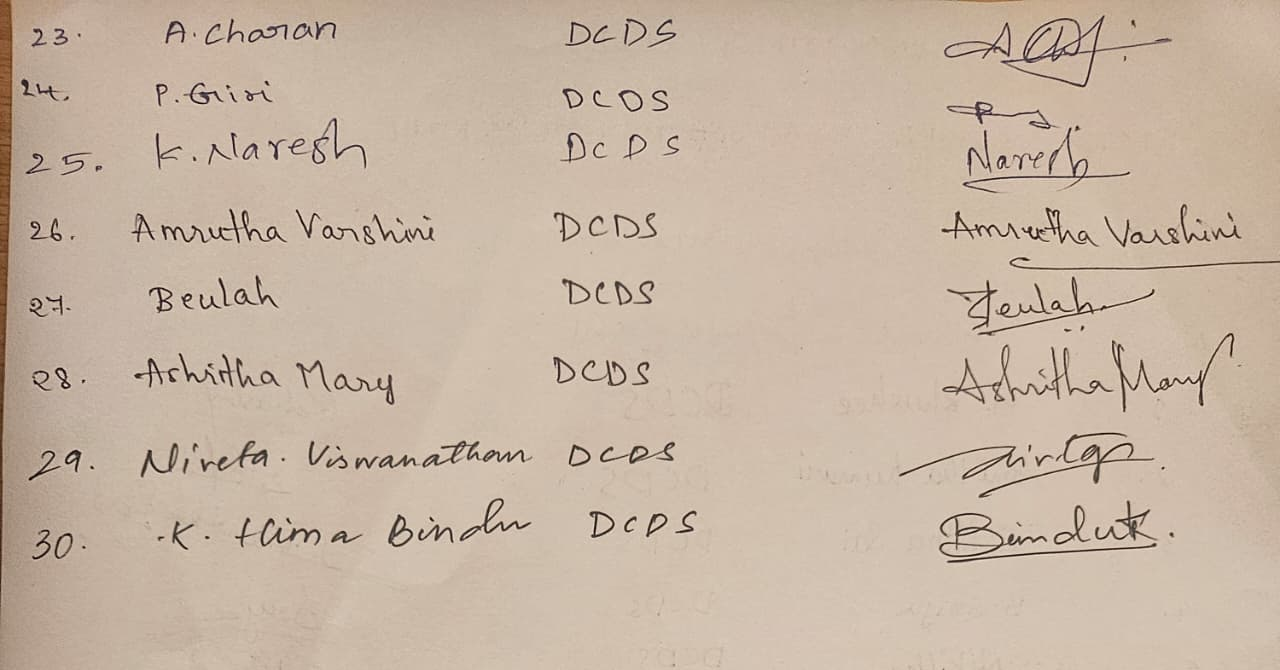 23. A. Charan DCDS
24. P. Giri DCDS
25. K. Naresh DCDS Naresh
26. Amrutha Varshini DCDS Amrutha Varshini
27. Beulah DCDS Beulah
28. Ashritha Mary DCDS Ashritha Mary
29. Nireta. Viswanathan DCDS
30. K. Hima Bindu DCDS Bindu K.